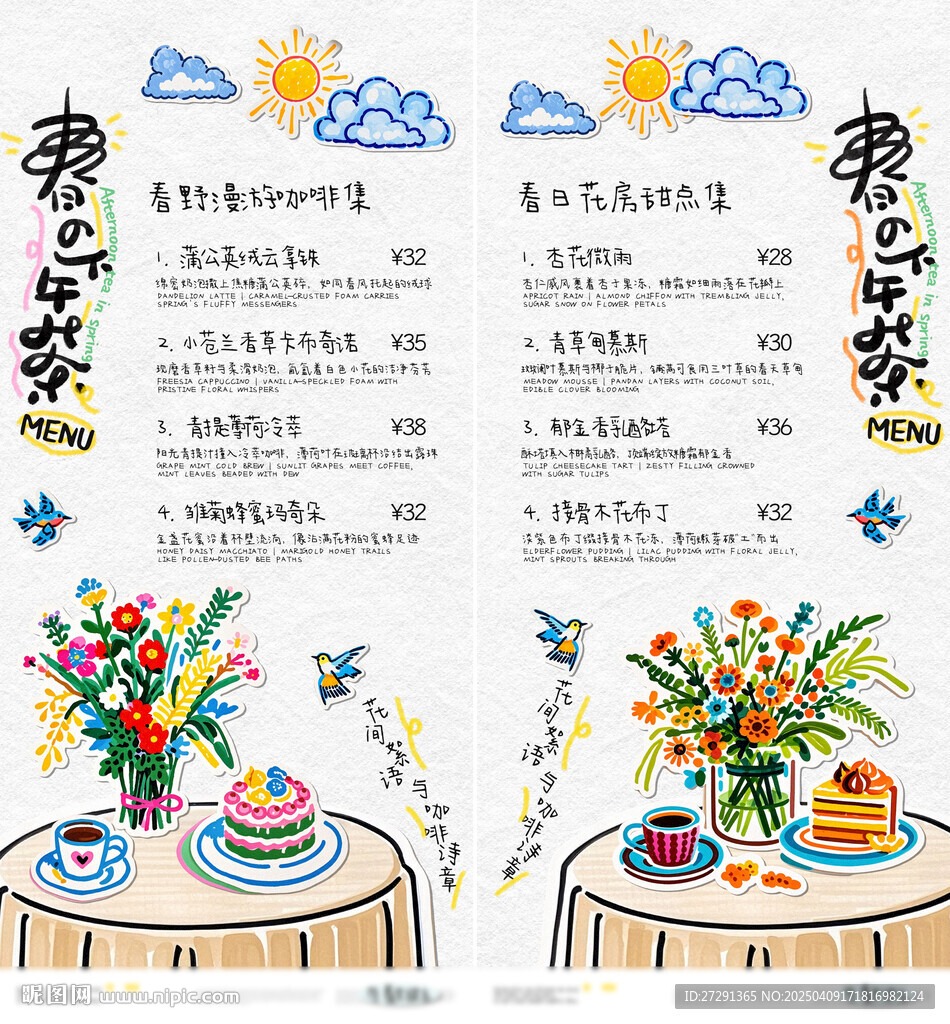 春の下午茶
Afternoon tea in spring
MENU
春野漫游咖啡集
1. 蒲公英绒云拿铁 ¥32
绵密奶泡撒上焦糖蒲公英碎，如同春风托起的绒球
DANDELION LATTE | CARAMEL-CRUSTED FOAM CARRIES
SPRING'S FLUFFY MESSENGERS
2. 小苍兰香草卡布奇诺 ¥35
现磨香草籽与柔滑奶泡，氤氲着白色小花的洁净芬芳
FREESIA CAPPUCCINO | VANILLA-SPECKLED FOAM WITH
PRISTINE FLORAL WHISPERS
3. 青提薄荷冷萃 ¥38
阳光青提汁撞入冷萃咖啡，薄荷叶在玻璃杯沿结出露珠
GRAPE MINT COLD BREW | SUNLIT GRAPES MEET COFFEE,
MINT LEAVES BEADED WITH DEW
4. 雏菊蜂蜜玛奇朵 ¥32
金盏花蜜沿着杯壁流淌，像沾满花粉的蜜蜂足迹
HONEY DAISY MACCHIATO | MARIGOLD HONEY TRAILS
LIKE POLLEN-DUSTED BEE PATHS
花间絮语与咖啡诗章
春の下午茶
Afternoon tea in spring
MENU
春日花房甜点集
1. 杏花微雨 ¥28
杏仁戚风裹着杏子果冻，糖霜如细雨落在花瓣上
APRICOT RAIN | ALMOND CHIFFON WITH TREMBLING JELLY,
SUGAR SNOW ON FLOWER PETALS
2. 青草甸慕斯 ¥30
斑斓叶慕斯与椰子脆片，铺满可食用三叶草的春天草甸
MEADOW MOUSSE | PANDAN LAYERS WITH COCONUT SOIL,
EDIBLE CLOVER BLOOMING
3. 郁金香乳酪塔 ¥36
酥塔嵌入柳橙乳酪，顶端绽放糖霜郁金香
TULIP CHEESECAKE TART | ZESTY FILLING CROWNED
WITH SUGAR TULIPS
4. 接骨木花布丁 ¥32
淡紫色布丁缀接骨木花冻，薄荷嫩芽破"土"而出
ELDERFLOWER PUDDING | LILAC PUDDING WITH FLORAL JELLY,
MINT SPROUTS BREAKING THROUGH
花间絮语与咖啡诗章
昵图网 www.nipic.com
ID:27291365 NO:20250409171816982124